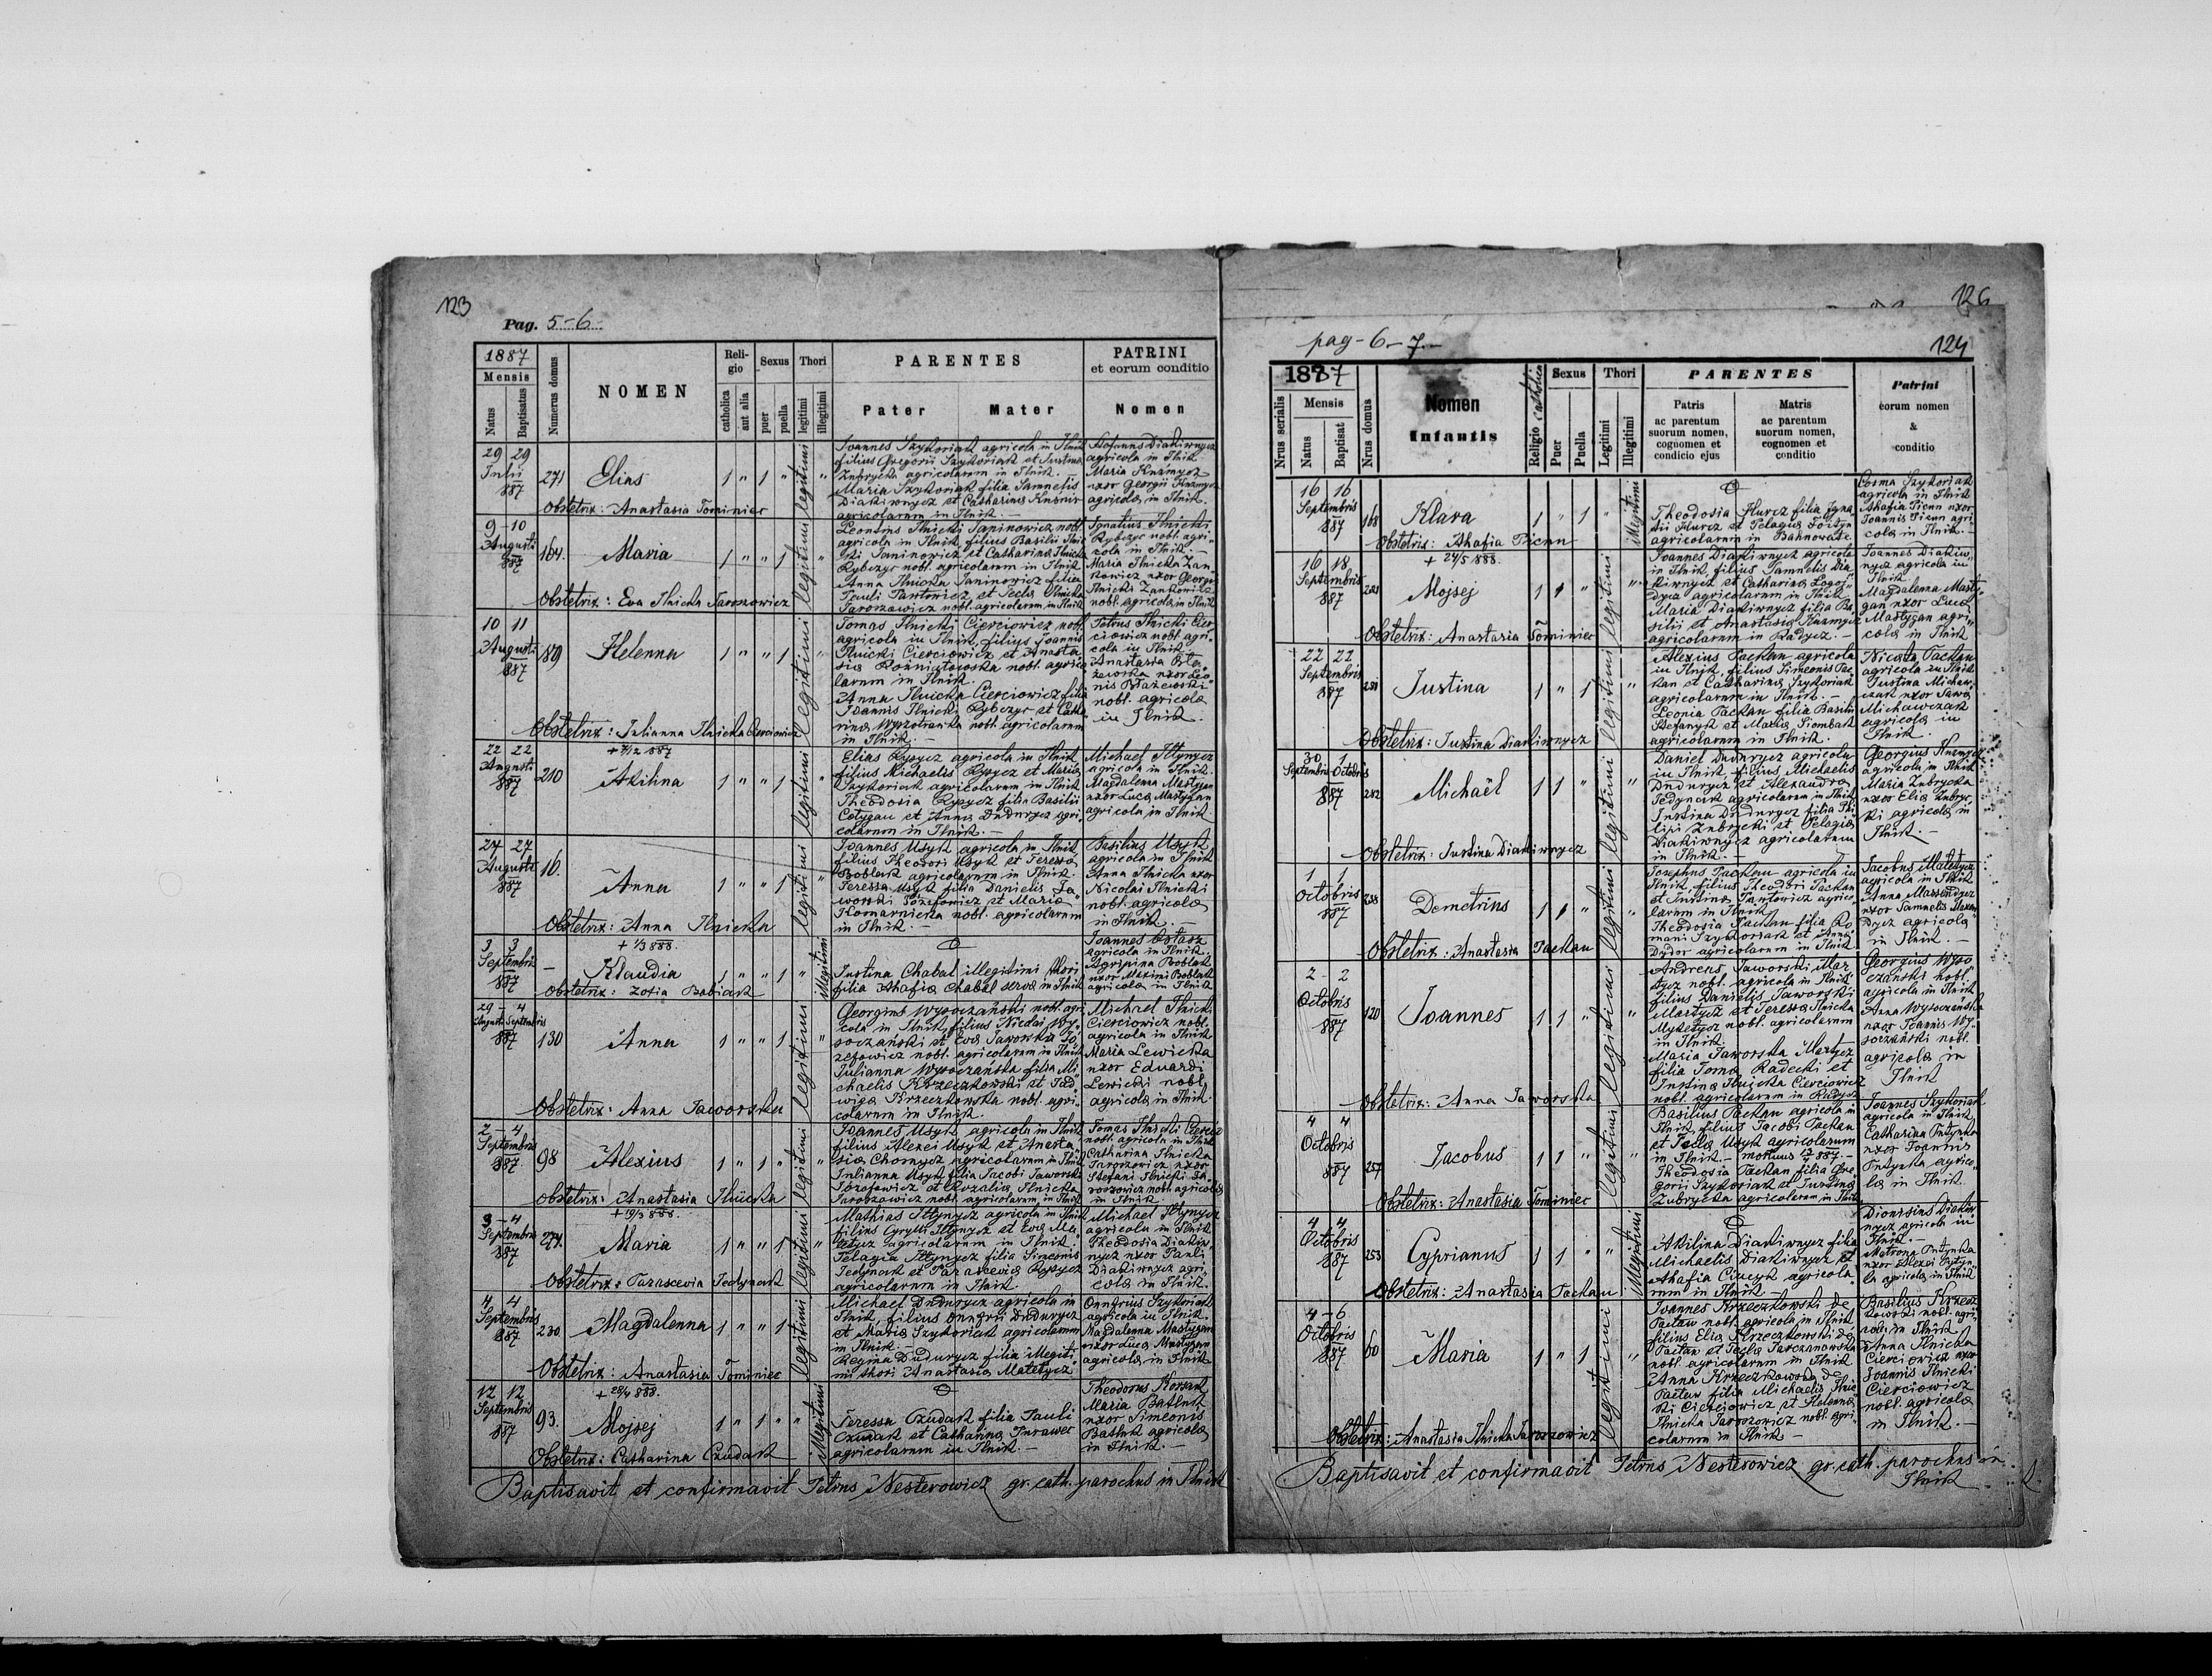 123
Pag. 5-6-
1887
Mensis
Natus
Baptisatus
Numerus domus
NOMEN
Reli-
gio
catholica
aut alia
Sexus
puer
puella
Thori
legitimi
illegitimi
PARENTES
Pater Mater
PATRINI
et eorum conditio
Nomen
29 29
Julii
887
271
Elias
1 " 1 " legitimi "
Obstetrix: Anastasia Tominiec
Joannes Szykoriak agricola in Ilnik
filius Gregorii Szykoriak et Justina
Zubrycka agricolarum in Ilnik.
Maria Szykoriak filia Samuelis
Diakiwnycz et Catharina Kusznir
agricolarum in Ilnik.—
Diakiwnycz
agricola in Ilnik.
Maria Kuzmycz
uxor Georgii Kuzmycz
agricola in Ilnik.
9-10
Augusti
887
164.
Maria
1 " " 1 legitimi "
Obstetrix: Eva Ilnicka Jaroszowicz
Leontius Ilnicki Janinowicz nobl.
agricola in Ilnik, filius Basilii Ilnic
ki Janinowicz et Catharina Ilnicka
Rybczyc nobl. agricolarum in Ilnik
Anna Ilnicka Janinowicz filia
Pauli Pantowicz et Tecla Ilnicka
Jaroszowicz nobl. agricolarum in Ilnik
Ignatius Ilnicki
Rybczyc nobl. agri-
cola in Ilnik.—
Maria Ilnicka Zan
kowicz uxor Georgii
Ilnicki Zankowicz
nobl. agricola in Ilnik
10 11
Augusti
887
189
Helenna
1 " " 1 legitimi "
Obstetrix: Julianna Ilnicka Cierciowicz
Tomas Ilnicki Cierciowicz nobl.
agricola in Ilnik, filius Joannis
Ilnicki Cierciowicz et Anasta
sia Rozniatowska nobl. agrico
larum in Ilnik.
Anna Ilnicka Cierciowicz filia
Joannis Ilnicki Rybczyc et Catha
rina Wyszotrawka nobl. agricolarum
in Ilnik.—
Petrus Ilnicki Cier
ciowicz nobl. agri-
cola in Ilnik
Anastasia Bła
żewska uxor Leo
nis Błażewski
nobl. agricola
in Ilnik.
22 22
Augusti
887
210
+ 7/12 887
Akilina
1 " " 1 legitimi "
Elias Rypycz agricola in Ilnik
filius Michaelis Rypycz et Maria
Szykoriak agricolarum in Ilnik
Theodosia Rypycz filia Basilii
Cotygan et Anna Dudurycz agri,
colarum in Ilnik.—
Michael Iltynycz
agricola in Ilnik.
Magdalena Mastygan
uxor Luca Mastygan
agricola in Ilnik
27 27
Augusti
887
16.
Anna
1 " " 1 legitimi "
Obstetrix: Anna Ilnicka
Joannes Usyk agricola in Ilnik
filius Theodori Usyk et Teressa
Boblak agricolarum in Ilnik.
Teressa Usyk filia Danielis Ja
worski Józefowicz et Maria
Komarnicka nobl. agricolarum
in Ilnik.—
Basilius Usyk
agricola in Ilnik
Anna Ilnicka uxor
Nicolai Ilnicki
nobl. agricola
in Ilnik.—
3 3
Septembris
887
—
+ 1/3 888.
Klaudia
1 " " 1 " illegitimi
Obstetrix: Zofia Babiak
Justina Chabal illegitimi thori
filia Ahafia Chabal serva in Ilnik
Joannes Ostasz
agricola in Ilnik.
Agripina Boblak
uxor Maximi Boblak
agricola in Ilnik
29-4
Augusti Septembris
887
130
Anna
1 " " 1 legitimi "
Obstetrix: Anna Jaworska
Georgius Wysoczański nobl. agri
cola in Ilnik, filius Nicolai Wy,
soczański et Eva Jaworska Jó
zefowicz nobl. agricolarum in Ilnik
Julianna Wysoczańska filia Mi
chaelis Krzeczkowski et Jad
wiga Krzeczkowska nobl. agri,
colarum in Ilnik.
Michael Ilnicki
Cierciowicz nobl.
agricola in Ilnik
Maria Lewicka
uxor Eduardi
Lewicki nobl.
agricola in Ilnik.
2-4
Septembris
887
98
Alexius
1 " 1 " legitimi "
Obstetrix: Anastasia Ilnicka
Joannes Usyk agricola in Ilnik
filius Alexei Usyk et Anasta,
sia Chomycz agricolarum in Ilnik
Julianna Usyk filia Jacobi Jaworski
Józefowicz et Rozalia Ilnicka
Jaroszowicz nobl. agricolarum in Ilnik
Tomas Ilnicki Cierciow
nobl. agricola in Ilnik
Catharina Ilnicka
Jaroszowicz uxor
Stefani Ilnicki Ja,
roszowicz nobl. agricola
in Ilnik.
3-4
Septembris
887
274.
+ 19/3 888.
Maria
1 " " 1 legitimi "
Obstetrix: Parascevia Fedynak
Mathias Iltynycz agricola in Ilnik
filius Cyrylli Iltynycz et Eva Ma
letycz agricolarum in Ilnik.
Pelagia Iltynycz filia Simeonis
Fedynak et Parascevia Rypycz
agricolarum in Ilnik.
Michael Iltynycz
agricola in Ilnik
Theodosia Diakiw,
nycz uxor Pauli
Diakiwnycz agri,
cola in Ilnik.
4 4
Septembris
887
230
Magdalenna
1 " " 1 legitimi
Obstetrix: Anastasia Tominiec
Michael Dudurycz agricola in
Ilnik, filius Onufrii Dudurycz
et Maria Szykoriak agricolarum
in Ilnik.—
Regina Dudurycz filia illegiti
mi thori Anastasia Maletycz.
Onufrius Szykoriak
agricola in Ilnik.
Magdalenna Mastygan
uxor Luca Mastygan
agricola in Ilnik
12 12
Septembris
887
93.
+ 28/4 888.
Mojsej
1 " 1 " " illegitimi
Obstetrix: Catharina Czudak
Teressa Czudak filia Pauli
Czudak et Catharina Purawec
agricolarum in Ilnik.—
Theodorus Korsak
Maria Batluk
uxor Simeonis
Batluk agricola
in Ilnik.—
Baptisavit et confirmavit Petrus Nesterowicz gr. cath. parochus in Ilnik
126
124
pag-6-7.-
1887
Nrus serialis
Mensis
Natus
Baptisat
Nrus domus
Nomen
Infantis
Religio catholica
Sexus
Puer
Puella
Thori
Legitimi
Illegitimi
PARENTES
Patris
ac parentum
suorum nomen,
cognomen et
condicio ejus
Matris
ac parentum
suorum nomen,
cognomen et
conditio
Patrini
eorum nomen
&
conditio
16 16
Septembris
887
168
Klara
1 " 1 " illegitimi
Obstetrix: Ahafia Picun
Theodosia Hurcz filia Igna
tii Hurcz et Pelagia Fostyn
agricolarum in Bahnowate.
Cosma Szykoriak
agricola in Ilnik
Ahafia Picun uxor
Joannis Picun agri
cola in Ilnik.—
16 18
Septembris
887
+ 24/5 888.
Mojsej
1 1 " legitimi "
Obstetrix: Anastasia Tominiec
Joannes Diakiwnycz agricola
in Ilnik, filius Samuelis Dia
kiwnycz et Catharina
agricolarum in Ilnik
Maria Diakiwnycz filia Ba,
silii et Anastasia Kuzmycz
agricolarum in Radycz.—
Joannes Diakiw,
nycz agricola in
Ilnik
Magdalenna Masty,
gan uxor Luca
Mastygan agri,
cola in Ilnik
22 22
Septembris
887
Justina
1 " 1 legitimi "
Obstetrix: Justina Diakiwnycz
Alexius Packan agricola
in Ilnik, filius Simeonis Pac
kan et Catharina Szykoriak
agricolarum in Ilnik.—
Leonia Packan filia Basilii
Stefanyk et Maria Siombak
agricolarum in Ilnik.
Nicola Packan
agricola in Ilnik
Justina Michaw,
czak uxor Sawa
Michawczak
agricola in
Ilnik.
30 1
Septembris Octobris
887
212
Michaël
1 1 " legitimi "
Obstetrix: Justina Diakiwnycz
Daniel Dudurycz agricola
in Ilnik, filius Michaelis
Dudurycz et Alexandra
Fedynak agricolarum in Ilnik
Justina Dudurycz filia Phi
lipi Zubrycki et Pelagia
Diakiwnycz agricolarum
in Ilnik.—
Georgius Kuzmycz
agricola in Ilnik
Maria Zubrycka
uxor Elia Zubryc,
ki agricola in
Ilnik.—
1 1
Octobris
887
238
Demetrius
1 1 " legitimi "
Obstetrix: Anastasia Packan
Josephus Packan agricola in
Ilnik, filius Theodori Packan
et Justina Pantowicz agrico,
larum in Ilnik
Theodosia Packan filia Ro
mani Szykoriak et Anna
Dydor agricolarum in Ilnik
Jacobus Maletycz
agricola in Ilnik
Anna
uxor Samuelis
agricola
in Ilnik.—
2-2
Octobris
887
120
Joannes
1 1 " legitimi "
Obstetrix: Anna Jaworska
Andreas Jaworski Mar
tycz nobl. agricola in Ilnik
filius Danielis Jaworski
Martycz et Teressa Ilnicka
Mykietycz nobl. agricolarum
in Ilnik.
Maria Jaworska Martycz
filia Toma Radecki et
Justina Ilnicka Cierciowicz
nobl. agricolarum in Radycz
Georgius Wyso
czański nobl.
agricola in Ilnik
Anna Wysoczańska
uxor Joannis Wy,
soczański nobl.
agricola in
Ilnik
4 4
Octobris
887
257
Jacobus
1 1 " legitimi "
Obstetrix: Anastasia Tominiec
Basilius Packan agricola in
Ilnik, filius Jacobi Packan
et Tecla Usyk agricolarum
in Ilnik.— mortuus 887.—
Theodosia Packan filia Gre
gorii Szykoriak et Justina
Zubrycka agricolarum in Ilnik
Joannes Szykoriak
agricola in Ilnik
Catharina Putynka
uxor Joannis
Putynka agrico,
la in Ilnik.
4 4
Octobris
887
253
Cyprianus
1 1 " " illegitimi
Obstetrix: Anastasia Packan
Akilina Diakiwnycz filia
Michaelis Diakiwnycz et
Ahafia Ciucyk agricola,
rum in Ilnik.—
Dionisius Diakiw
nycz agricola in
Ilnik.—
Matrona Putynka
uxor Alexei Putyn,
ka agricola in Ilnik
4-6
Octobris
887
60
Maria
1 " 1 legitimi "
Obstetrix: Anastasia Ilnicka Jaroszowicz
Joannes Krzeczkowski de
Pacław nobl. agricola in Ilnik
filius Elia Krzeczkowski de
Pacław et Tecla Tarczanowska
nobl. agricolarum in Ilnik
Anna Krzeczkowska de
Pacław filia Michaelis Ilnic
ki Cierciowicz et Helenna
Ilnicka Jaroszowicz nobl. agri,
colarum in Ilnik—
Basilius Krzecz
kowski nobl. agri,
cola in Ilnik
Anna Ilnicka
Cierciowicz uxor
Joannis Ilnicki
Cierciowicz
nobl. agricola
in Ilnik.—
Baptisavit et confirmavit Petrus Nesterowicz gr. cath. parochus in
Ilnik